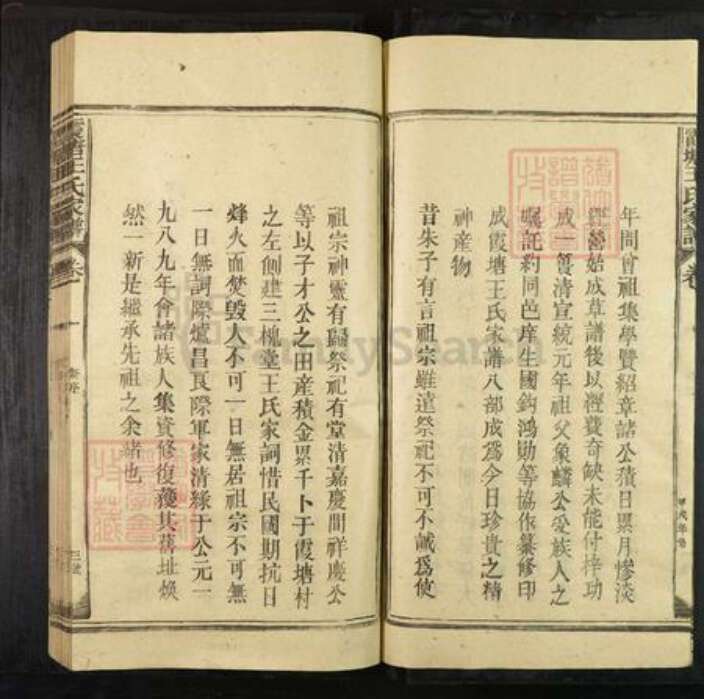 年間曾祖集學贊紹章諸公積日累月慘淡
經營始成草譜後以經費奇缺未能付梓功
成一簣清宣統元年祖父象麟公受族人之
囑託約同邑庠生國鈞鴻勛等協作纂修印
成霞塘王氏家譜八部成為今日珍貴之精
神產物
昔朱子有言祖宗雖遠祭祀不可不誠為使
祖宗神靈有歸祭祀有堂清嘉慶間祥慶公
等以子才公之田產積金累千卜于霞塘村
之左創建三槐堂王氏家祠惜民國期抗日
烽火而焚毀人不可一日無居祖宗不可無
一日無祠際爐昌良際軍家清綠于公元一
九八九年會諸族人集資修復復其舊址煥
然一新是繼承先祖之余緒也
霞塘王氏家譜
卷一
三號
FamilySearch